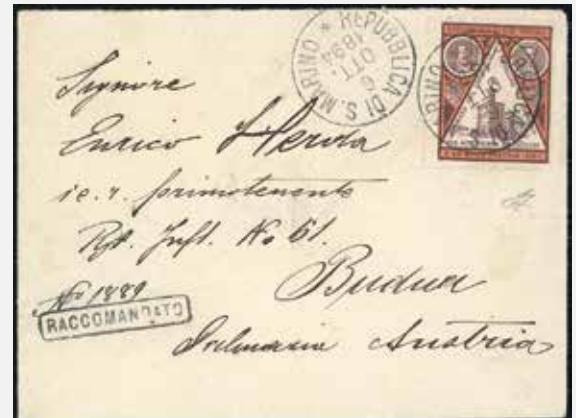 REPUBBLICA DI S. MARINO
6
OTT.
1894
Signore
Enrico Herda
i. e. r. primotenente
Rgt. Inft. No 61.
No 1889
Budua
RACCOMANDATO
Dalmazia Austria